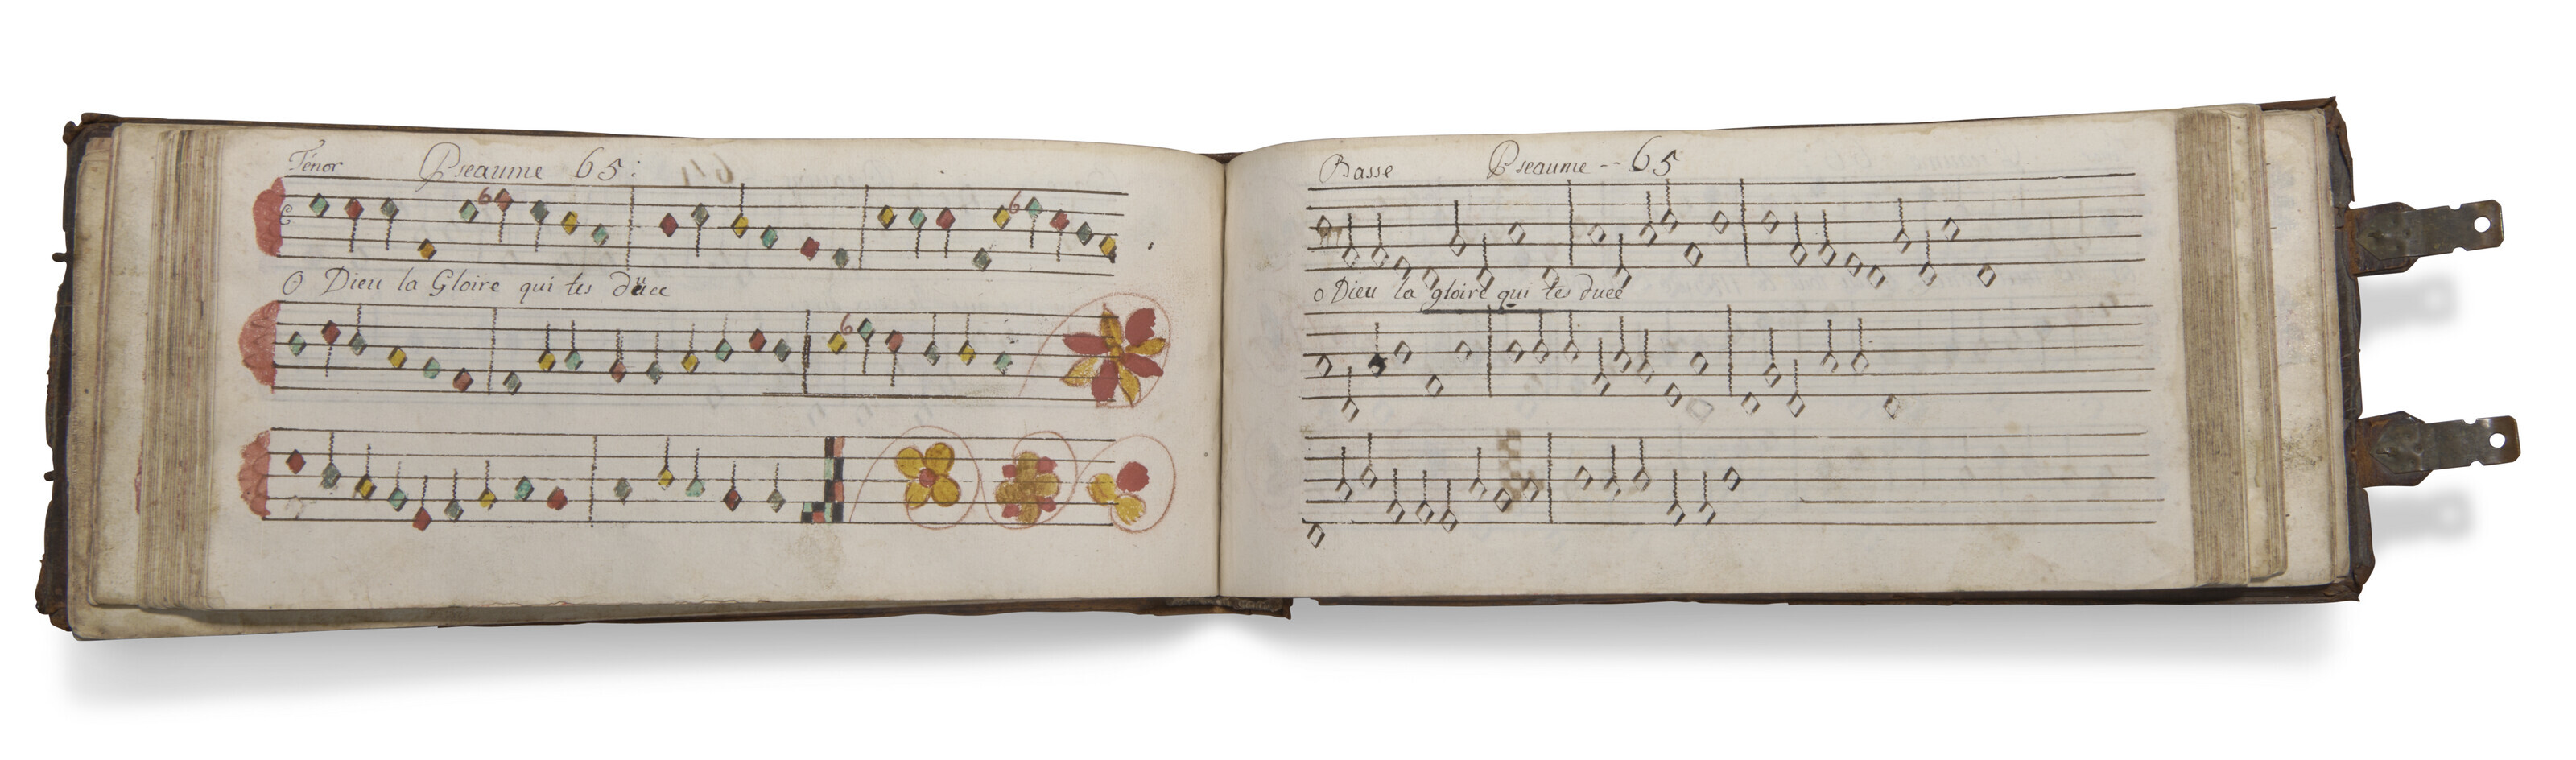 Ténor Pseaume 65:
O Dieu la Gloire qui tes düee
Basse Pseaume -- 65
o Dieu la gloire qui tes duee